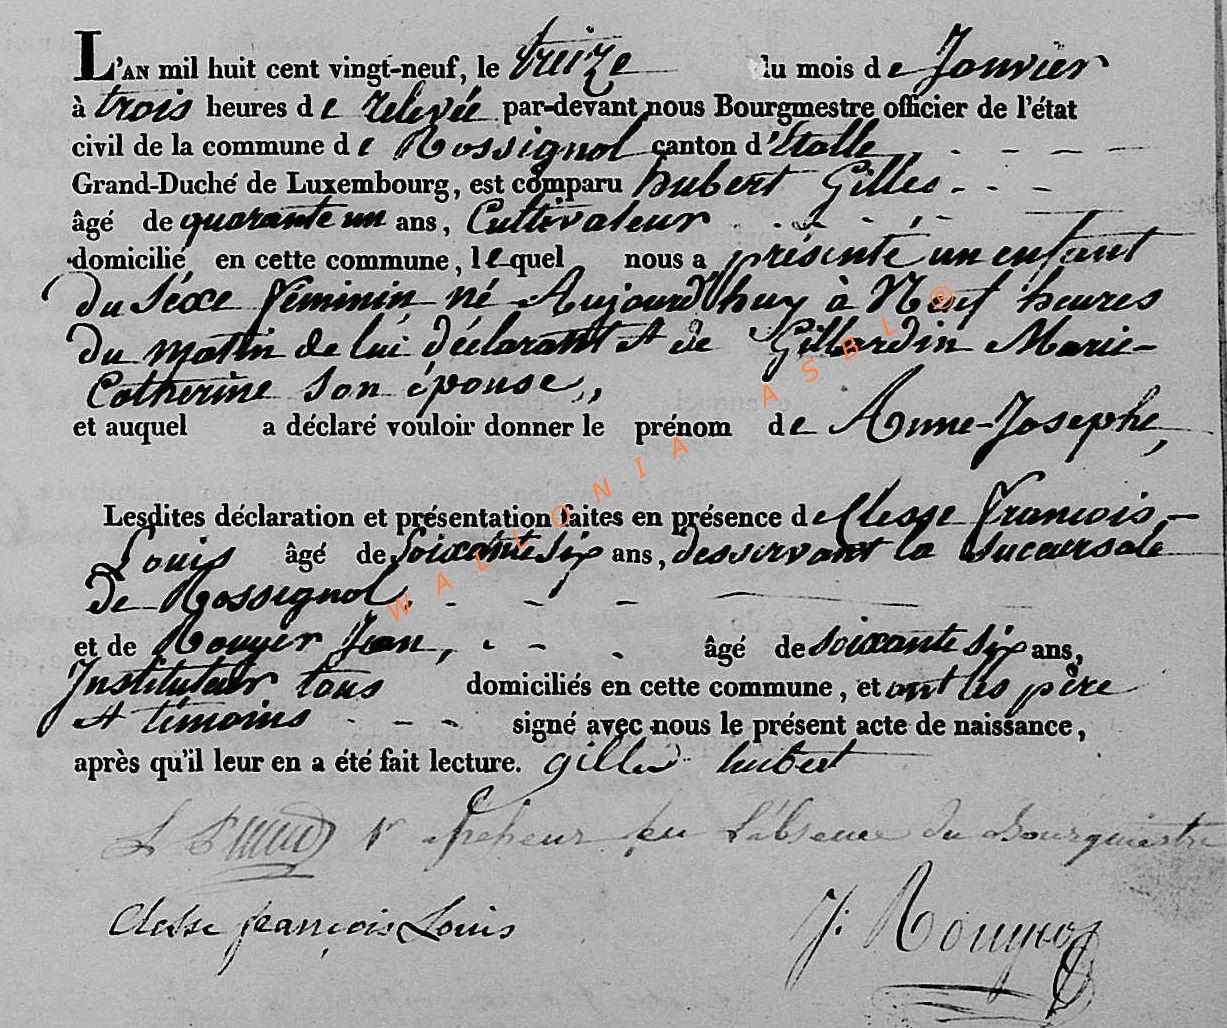 L'AN mil huit cent vingt-neuf, le treize du mois de Janvier
à trois heures de relevée par-devant nous Bourgmestre officier de l'état
civil de la commune de Rossignol canton d'Etalle
Grand-Duché de Luxembourg, est comparu hubert Gilles
âgé de quarante un ans, Cultivateur
domicilié en cette commune, lequel nous a présenté un enfant
du séxe féminin né Aujourd'huy à Neuf heures
du matin de lui déclarant et de Gillardin Marie-
Catherine son épouse,,
et auquel a déclaré vouloir donner le prénom de Anne-Josephe,
Lesdites déclaration et présentation faites en présence de Clesse François-
Louis âgé de soixante six ans, desservant la succursale
de Rossignol
et de Rouyer Jean, âgé de soixante six ans,
Instituteur tous domiciliés en cette commune, et ont les père
et témoins signé avec nous le présent acte de naissance,
après qu'il leur en a été fait lecture. gilles hubert
L'absence du Bourgmestre
Clesse françois Louis J: Rouyer
WALLONIA ASBL ®